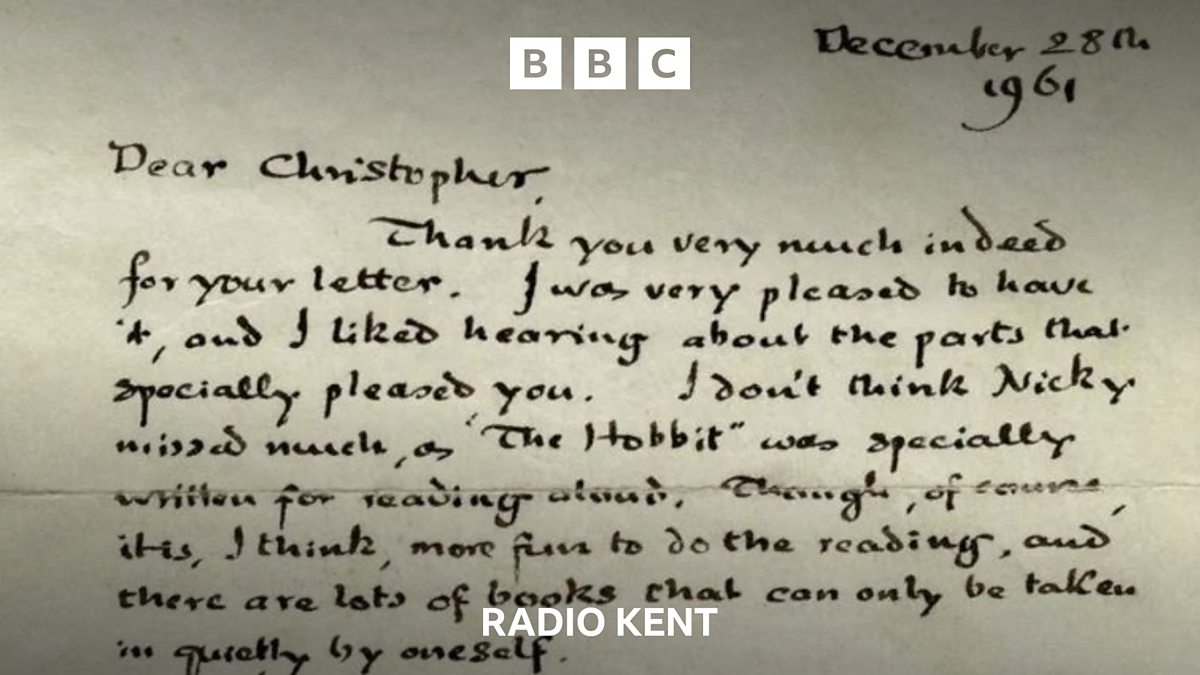 BBC
December 28th
1961
Dear Christopher,
Thank you very much indeed
for your letter. I was very pleased to have
it, and I liked hearing about the parts that
specially pleased you. I don't think Nicky
missed much, as "The Hobbit" was specially
written for reading aloud. Though, of course,
it is, I think, more fun to do the reading, and
there are lots of books that can only be taken
in quietly by oneself.
RADIO KENT